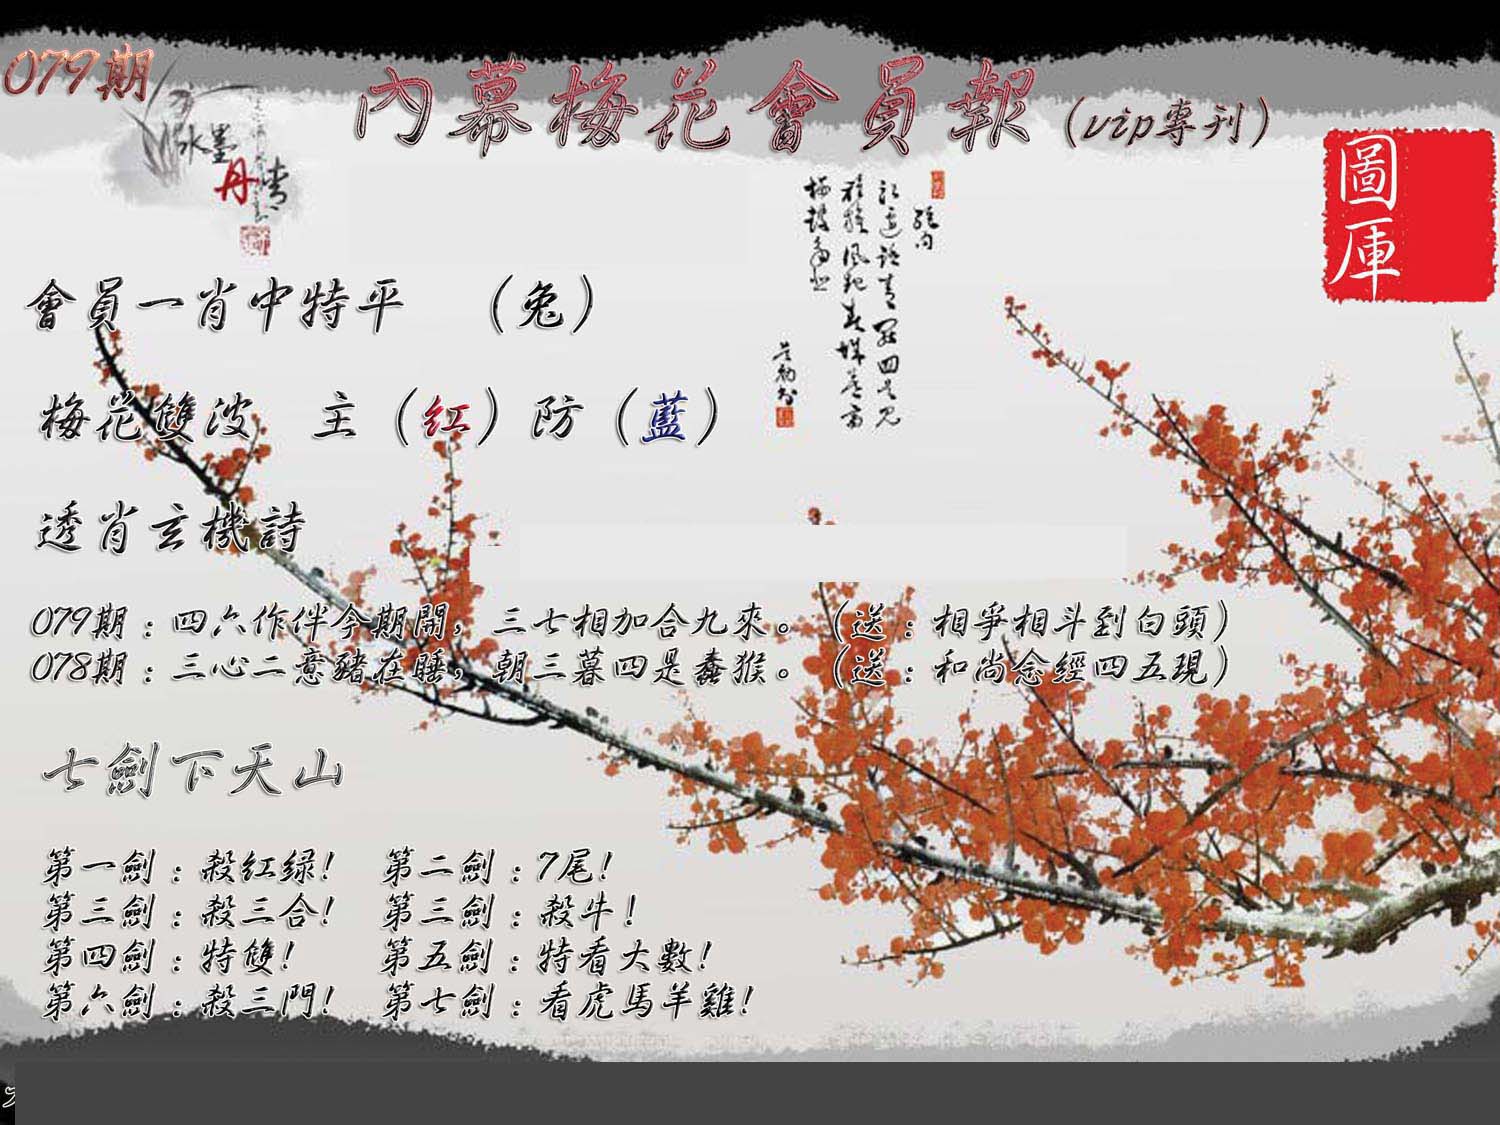 079期
內幕梅花會員報（vip專刊）
水墨
丹青
圖庫
會員一肖中特平　（兔）
梅花雙波　主（紅）防（藍）
透肖玄機詩
079期：四六作伴今期開，三七相加合九來。（送：相爭相斗到白頭）
078期：三心二意豬在睡，朝三暮四是蠢猴。（送：和尚念經四五現）
七劍下天山
第一劍：殺紅绿！　第二劍：7尾！
第三劍：殺三合！　第三劍：殺牛！
第四劍：特雙！　第五劍：特看大數！
第六劍：殺三門！　第七劍：看虎馬羊雞！